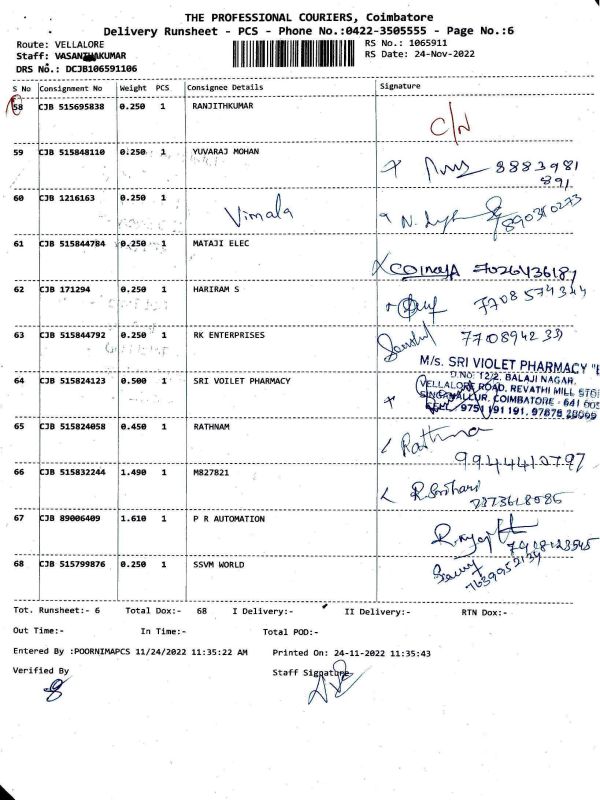 THE PROFESSIONAL COURIERS, Coimbatore
Delivery Runsheet - PCS - Phone No.:0422-3505555 - Page No.:6
Route: VELLALORE RS No.: 1065911
Staff: VASANTHAKUMAR RS Date: 24-Nov-2022
DRS No.: DCJB106591106
S No Consignment No Weight PCS Consignee Details Signature
58 CJB 515695838 0.250 1 RANJITHKUMAR C/N
59 CJB 515848110 0.250 1 YUVARAJ MOHAN 8883981
891
60 CJB 1216163 0.250 1 Vimala
61 CJB 515844784 0.250 1 MATAJI ELEC 7026436187
62 CJB 171294 0.250 1 HARIRAM S 7708574344
63 CJB 515844792 0.250 1 RK ENTERPRISES
M/s. SRI VIOLET PHARMACY
D.NO: 12/2, BALAJI NAGAR,
64 CJB 515824123 0.500 1 SRI VOILET PHARMACY VELLALORE ROAD, REVATHI MILL
SINGANALLUR, COIMBATORE - 641 005
65 CJB 515824058 0.450 1 RATHNAM Rathna
9944410797
66 CJB 515832244 1.490 1 M827821 R.Srihari
67 CJB 89006409 1.610 1 P R AUTOMATION
68 CJB 515799876 0.250 1 SSVM WORLD
Tot. Runsheet:- 6 Total Dox:- 68 I Delivery:- II Delivery:- RTN Dox:-
Out Time:- In Time:- Total POD:-
Entered By :POORNIMAPCS 11/24/2022 11:35:22 AM Printed On: 24-11-2022 11:35:43
Verified By Staff Signature